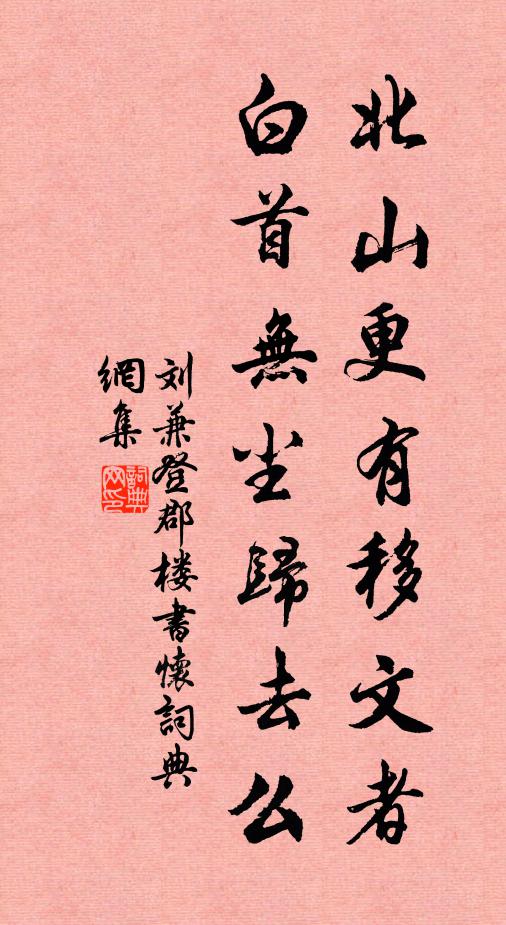 北山更有移文者
白首無尘歸去么
刘兼登郡楼書懷詞典
網集
詞典網印